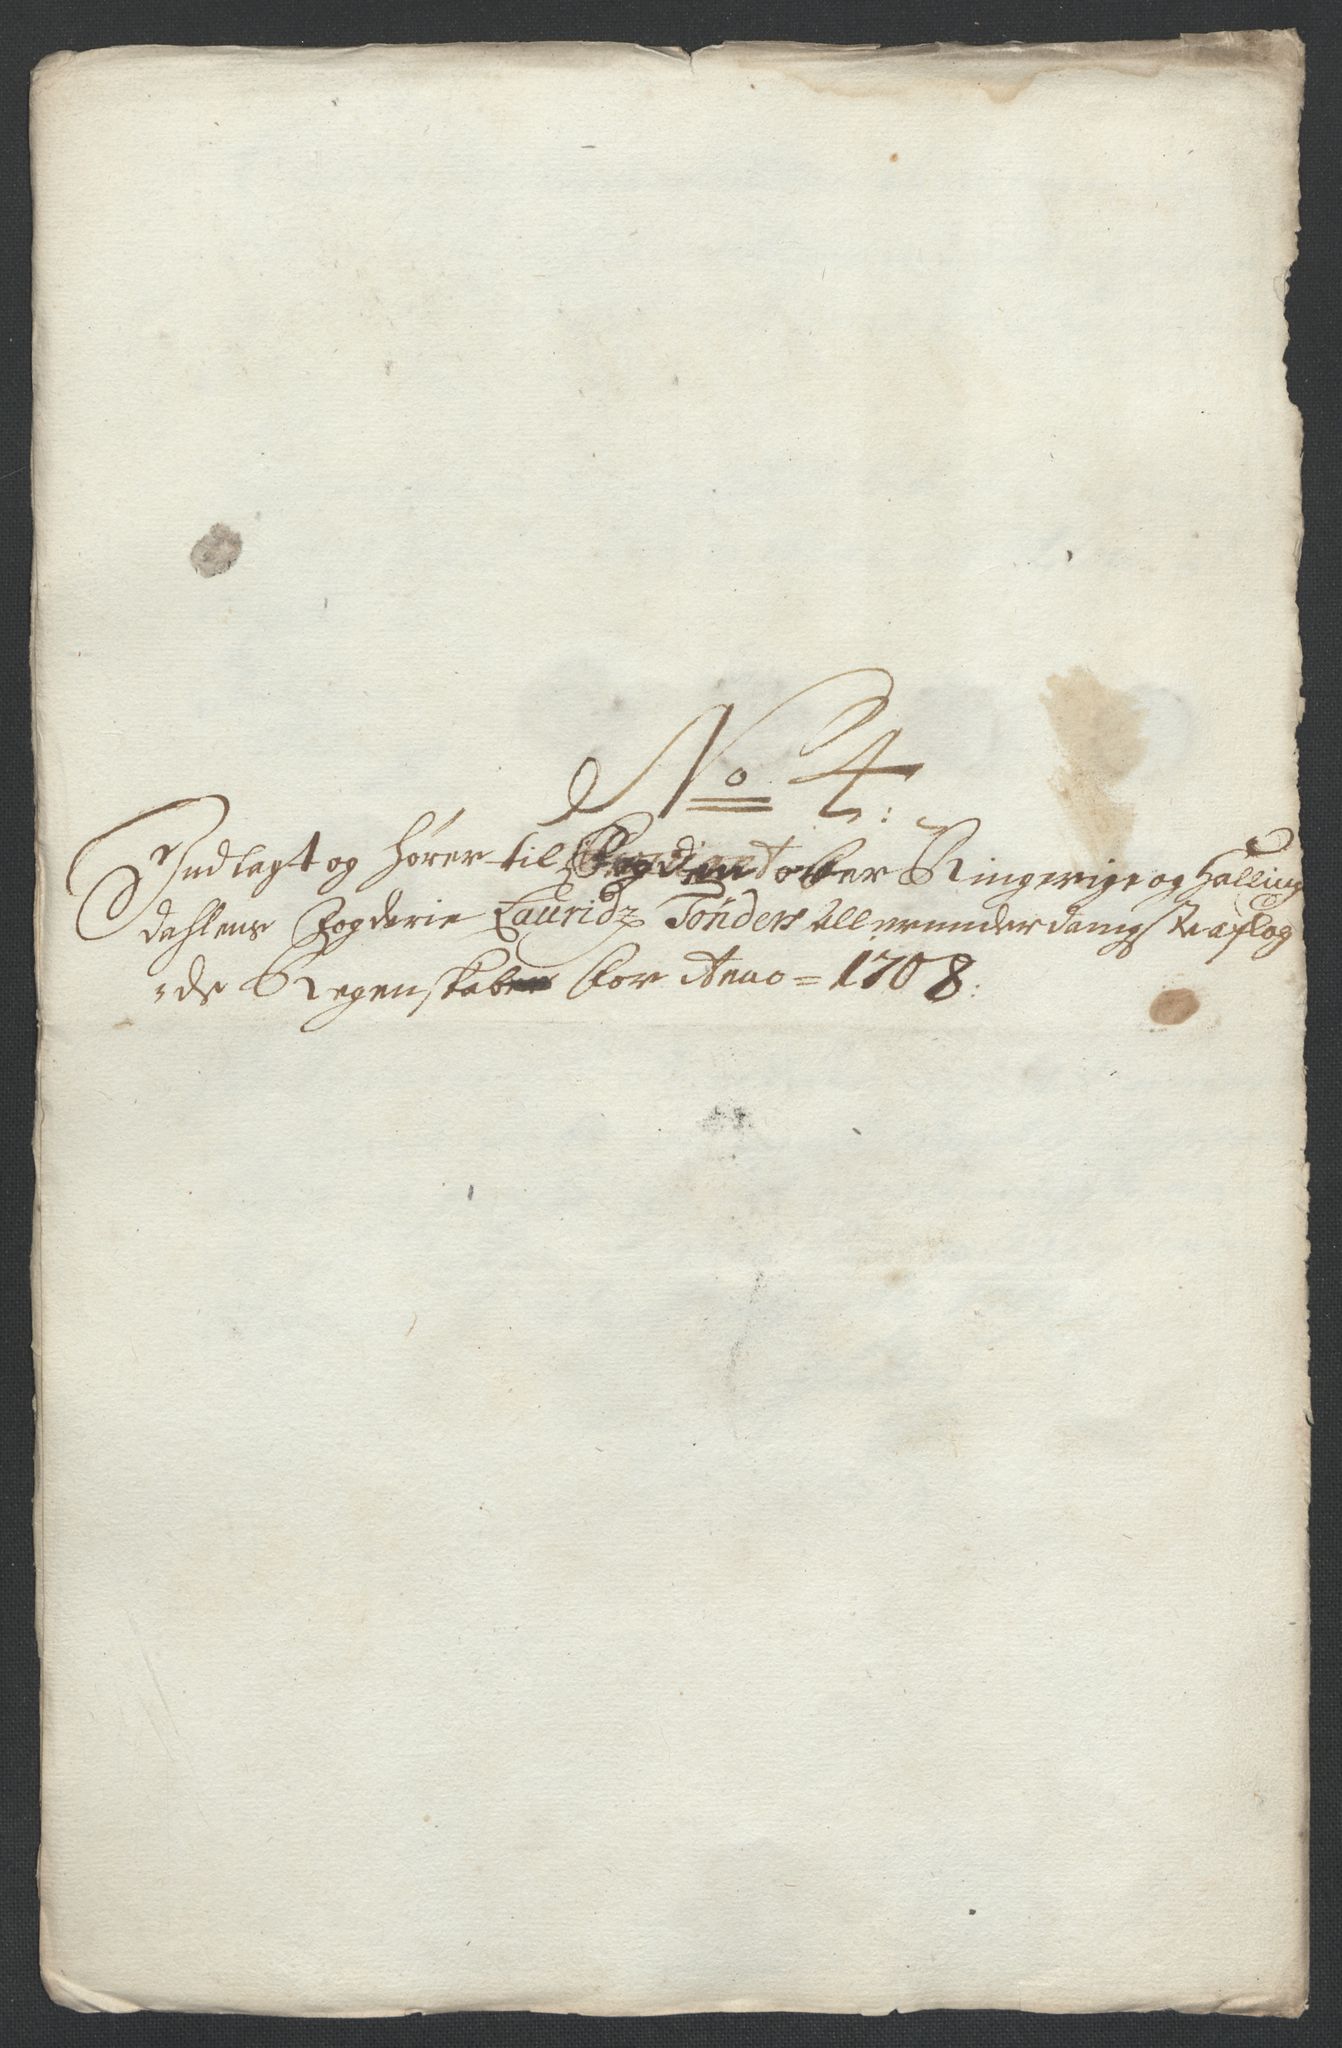 No 4:
Indlagt og hører til Fogden ober Ringerige og Halling
dahlens Fogderie Lauridz Tønders allerunderdanigste aflag
:de Regenskaber for Anno = 1708: